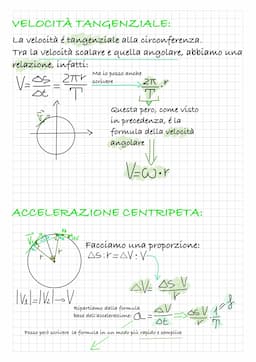 VELOCITÀ TANGENZIALE:
La velocità é tangenziale alla circonferenza.
Tra la velocità scalare e quella angolare, abbiamo una
relazione, infatti:
V = Δs/Δt = 2πr/T Ma lo posso anche scrivere 2π/T · r
Questa però, come visto
in precedenza, é la
formula della velocità
angolare
V=ω·r
ACCELERAZIONE CENTRIPETA:
Facciamo una proporzione:
Δs:r=ΔV:V
ΔV= Δs·V/r
|V₁|=|V₂|→V
Ripartiamo dalla formula
base dell'accelerazione: a = ΔV/Δt
Posso però scrivere la formula in un modo più rapido e semplice